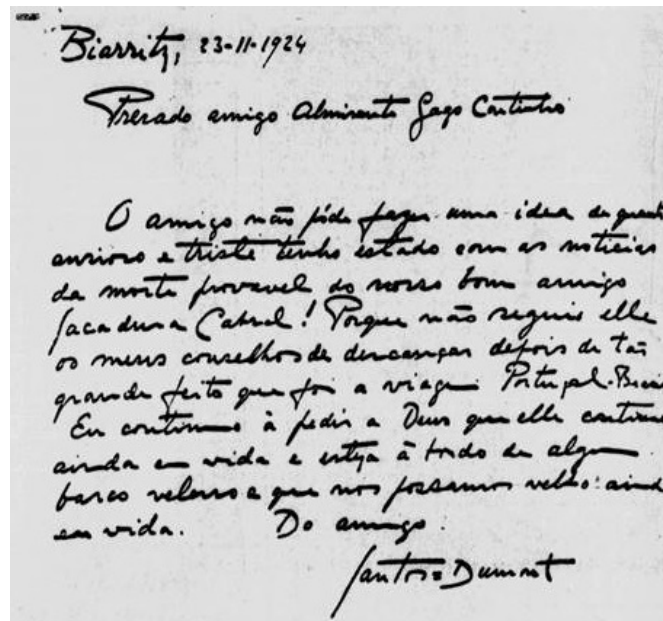 Biarritz, 23-11-1924
Prezado amigo Almirante Gago Coutinho
O amigo não póde fazer uma idea de quanto
ancioso e triste tenho estado com as noticias
da morte provavel do nosso bom amigo
Sacadura Cabral! Porque não seguiu elle
os meus conselhos de descançar depois de tão
grande feito que foi a viagem Portugal-Brasil
Eu continuo à pedir a Deus que elle continue
ainda em vida e esteja à bordo de algum
barco veleiro e que nos possamos vel-o ainda
em vida. Do amigo
Santos=Dumont